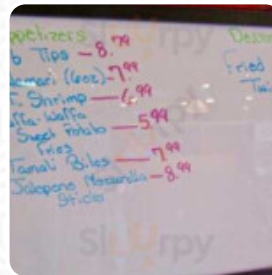 ppetizers
Tips — 8.79
(6oz) - 7.99
Shrimp — 6.99
Waffa
Sweet Potato — 5.99
Fries
Tamali Bites — 7.99
Jalapeno Mozzarella — 8.99
Sticks
Dess
Fried
Twi
Sirpy